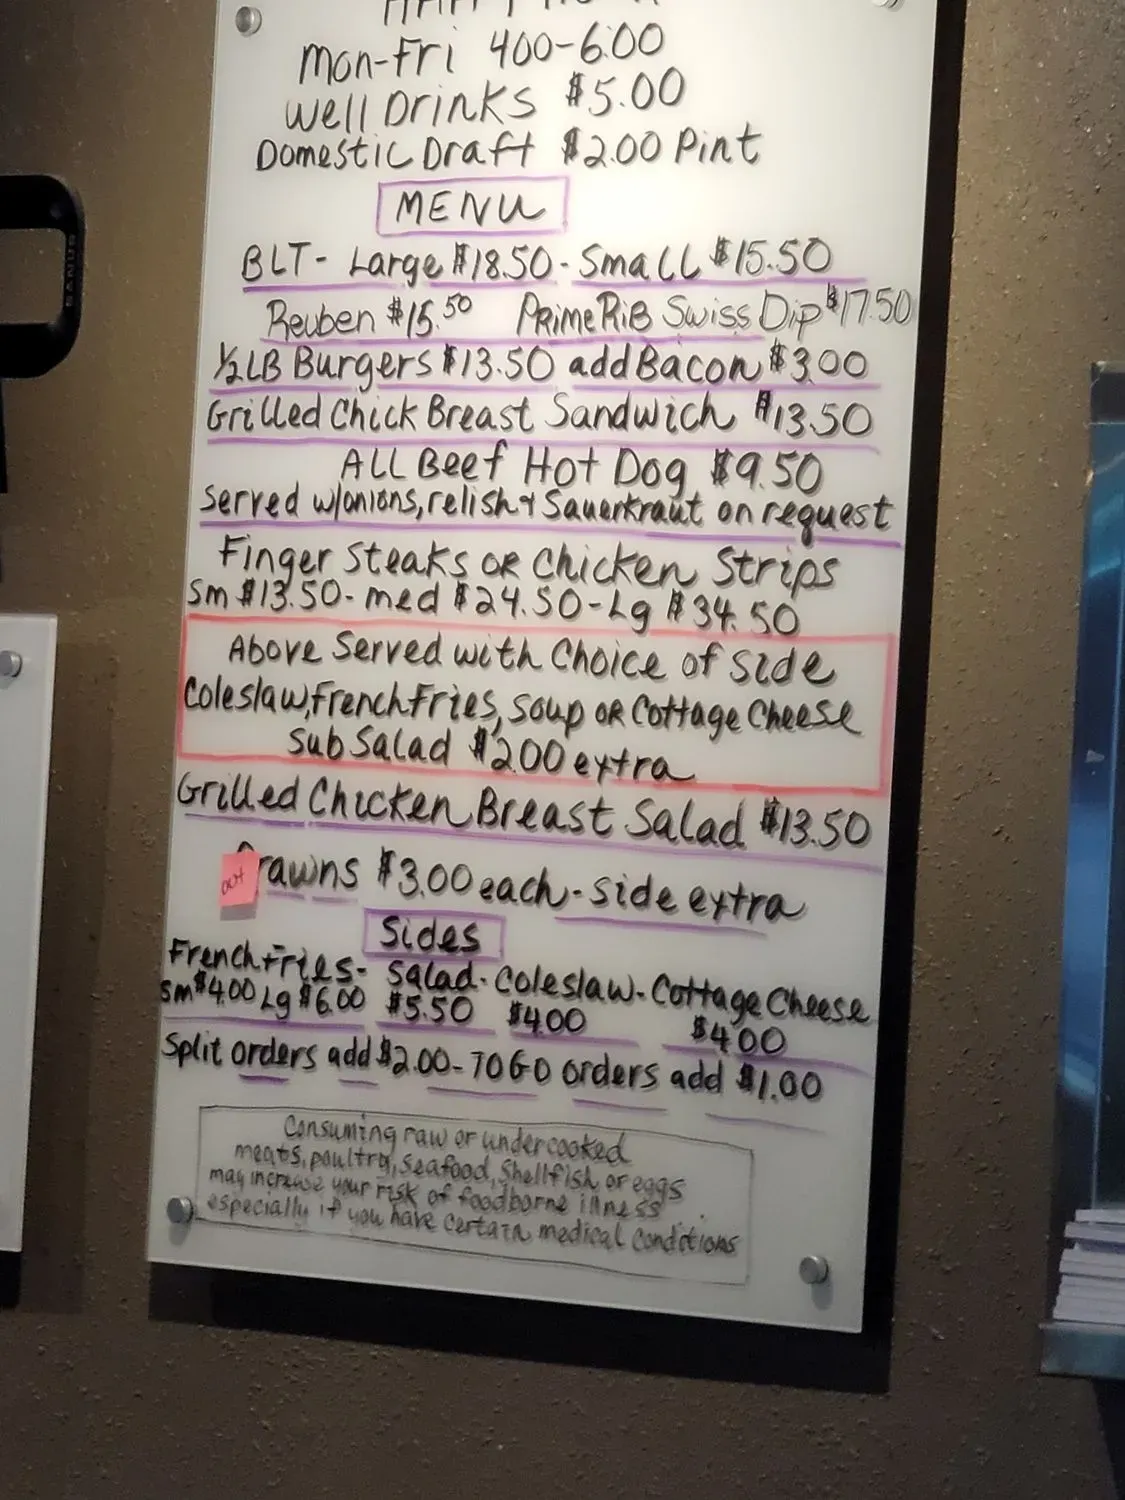 HAPPY HOUR
Mon-Fri 400-6:00
Well Drinks $5.00
Domestic Draft $2.00 Pint
MENU
BLT- Large $18.50 - Small $15.50
Reuben $15.50 Prime Rib Swiss Dip $17.50
1/2 LB Burgers $13.50 add Bacon $3.00
Grilled Chick Breast Sandwich $13.50
ALL Beef Hot Dog $9.50
Served w/onions, relish & Sauerkraut on request
Finger Steaks or Chicken Strips
Sm $13.50- med $24.50-Lg $34.50
Above Served with Choice of Side
Coleslaw, French Fries, Soup or Cottage Cheese
Sub Salad $2.00 extra
Grilled Chicken Breast Salad $13.50
out
Prawns $3.00 each - side extra
Sides
French Fries- Salad- Coleslaw- Cottage Cheese
Sm $4.00 Lg $6.00 $5.50 $4.00 $4.00
Split orders add $2.00- TO GO orders add $1.00
Consuming raw or undercooked
meats, poultry, seafood, shellfish or eggs
may increase your risk of foodborne illness
especially if you have certain medical conditions
SANUS